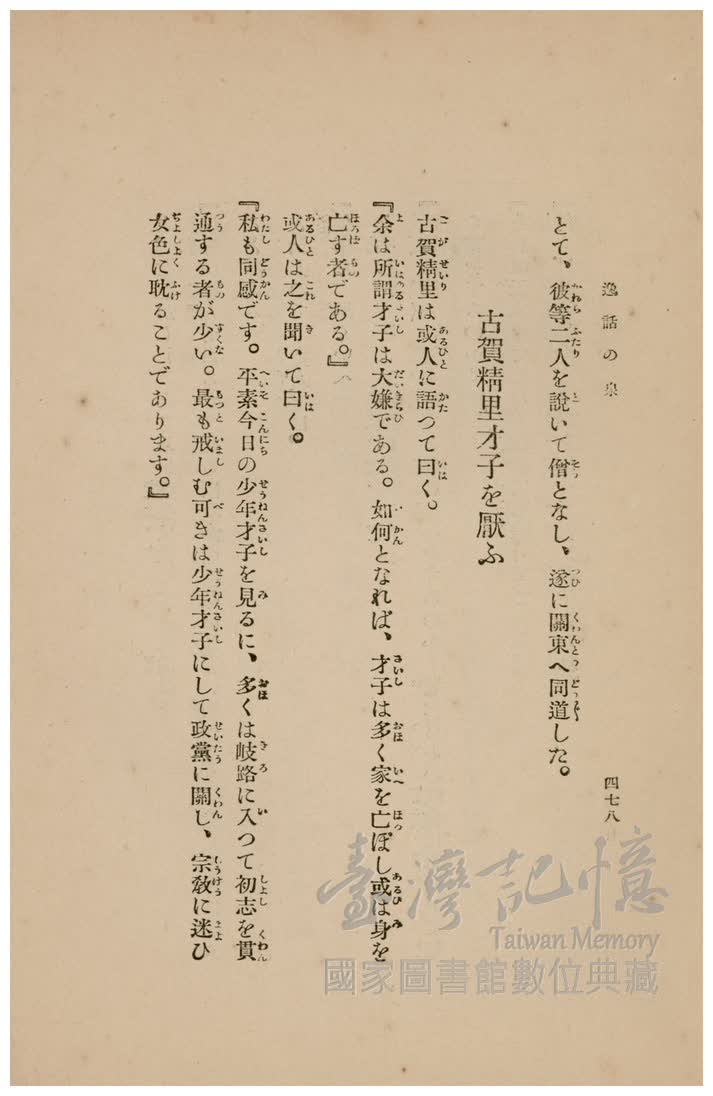 逸話の泉
四七八
とて、彼等二人を說いて僧となし、遂に關東へ同道した。
古賀精里才子を厭ふ
古賀精里は或人に語つて曰く。
『余は所謂才子は大嫌である。如何となれば、才子は多く家を亡ぼし或は身を
亡す者である。』
或人は之を聞いて曰く。
『私も同感です。平素今日の少年才子を見るに、多くは岐路に入つて初志を貫
通する者が少い。最も戒しむ可きは少年才子にして政黨に關し、宗敎に迷ひ
女色に耽ることであります。』
臺灣記憶
Taiwan Memory
國家圖書館數位典藏